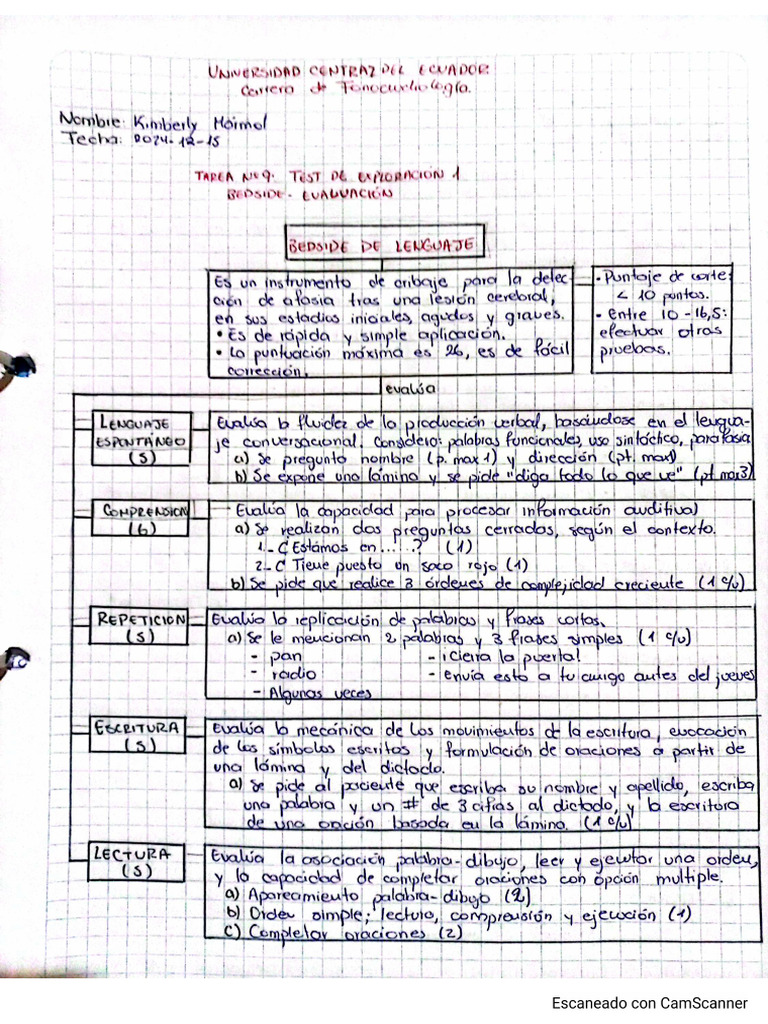 UNIVERSIDAD CENTRAL DEL ECUADOR
Carrera de Fonoaudiología.
Nombre: Kimberly Maimol
Fecha: 2024-12-15
TAREA Nº9: TEST DE EXPLORACIÓN 1
BEDSIDE - EVALUACIÓN
BEDSIDE DE LENGUAJE
Es un instrumento de cribaje para la detec-
ción de afasia tras una lesión cerebral,
en sus estadios iniciales, agudos y graves.
• Es de rápida y simple aplicación.
• La puntuación máxima es 26, es de fácil
corrección.
- Puntaje de corte:
< 10 puntos.
- Entre 10 - 16,5:
efectuar otras
pruebas.
evalúa
LENGUAJE
ESPONTÁNEO
(5)
Evalúa la fluidez de la producción verbal, basándose en el lengua-
je conversacional. Considera: palabras funcionales, uso sintáctico, parafasia
a) Se pregunta nombre (p. max 1) y dirección (pt. max1)
b) Se expone una lámina y se pide "diga todo lo que ve" (pt max3)
COMPRENSION
(6)
Evalúa la capacidad para procesar información auditiva)
a) Se realizan dos preguntas cerradas, según el contexto.
1.- ¿Estamos en......? (1)
2.- ¿Tiene puesto un saco rojo (1)
b) Se pide que realice 3 órdenes de complejidad creciente (1 c/u)
REPETICION
(5)
Evalúa la replicación de palabras y frases cortas.
a) Se le mencionan 2 palabras y 3 frases simples (1 c/u)
- pan
- radio
- Algunas veces
- ¡Cierra la puerta!
- envía esto a tu amigo antes del jueves
ESCRITURA
(5)
Evalúa la mecánica de los movimientos de la escritura, evocación
de los símbolos escritos y formulación de oraciones a partir de
una lámina y del dictado.
a) Se pide al paciente que escriba su nombre y apellido, escriba
una palabra y un # de 3 cifras al dictado, y la escritura
de una oración basada en la lámina. (1 c/u)
LECTURA
(5)
Evalúa la asociación palabra-dibujo, leer y ejecutar una orden,
y la capacidad de completar oraciones con opción multiple.
a) Apareamiento palabra-dibujo (2)
b) Orden simple; lectura, comprensión y ejecución (1)
c) Completar oraciones (2)
Escaneado con CamScanner